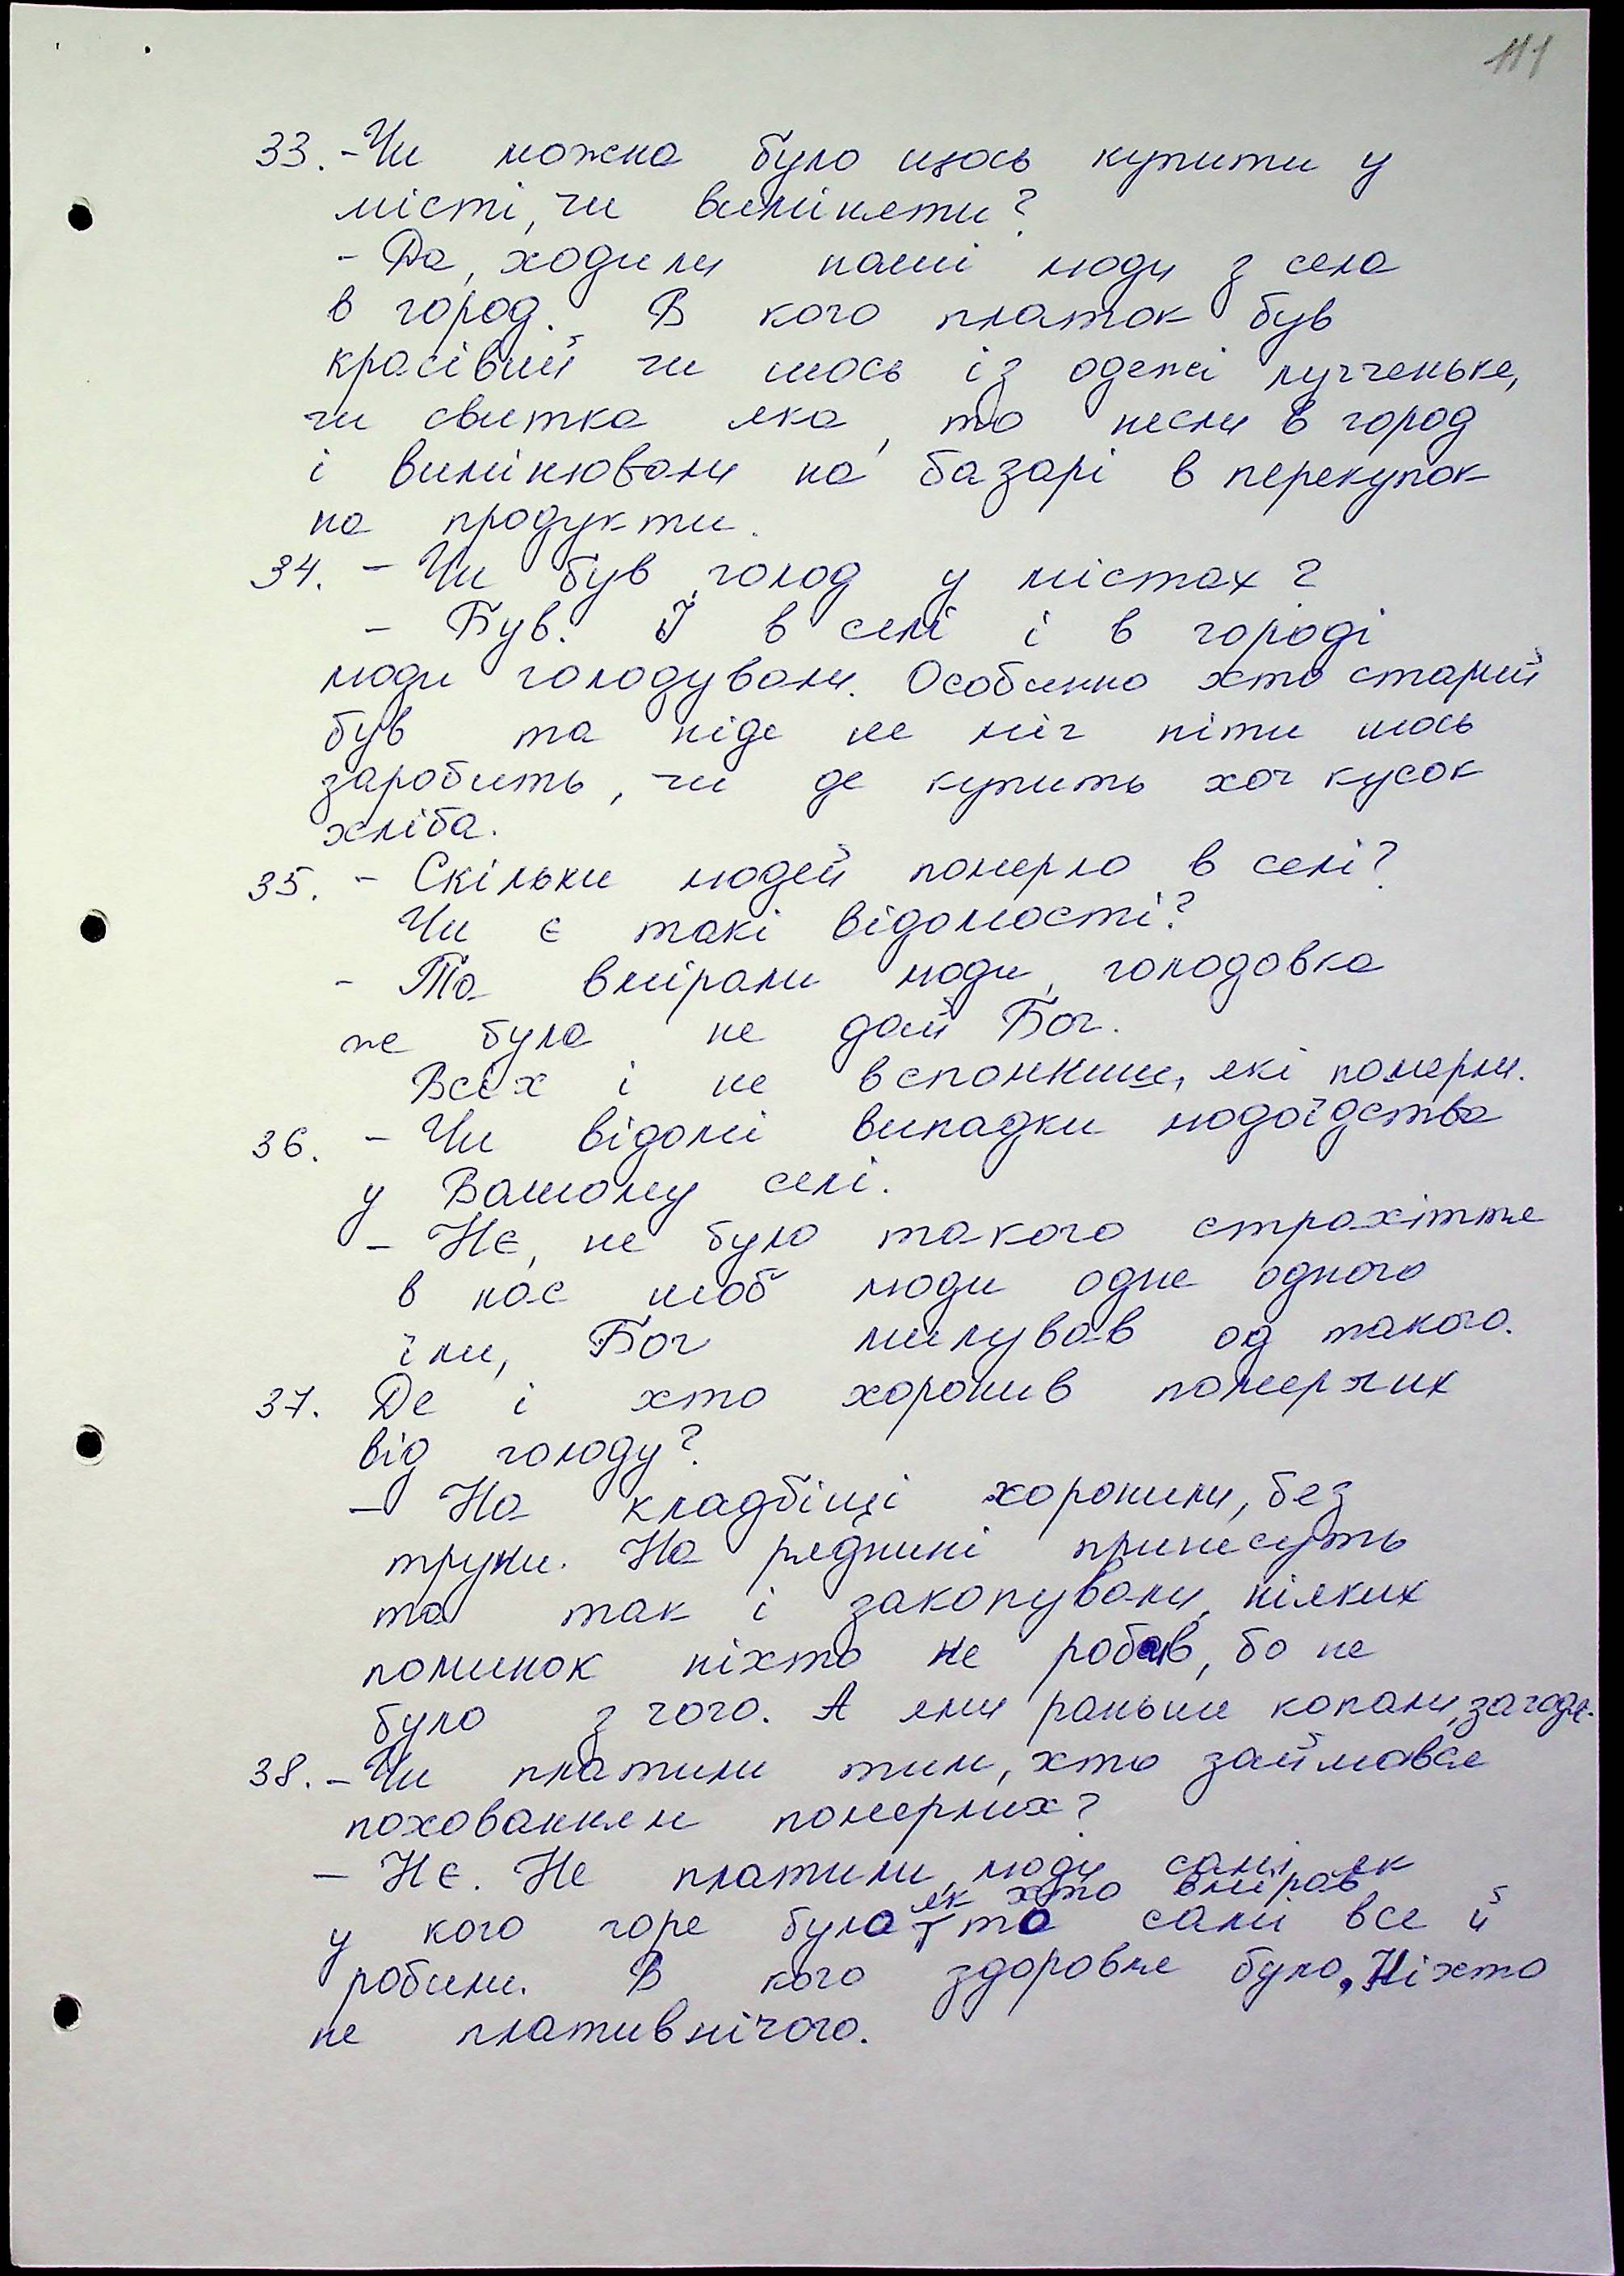 111
33. - Чи можна було щось купити у
місті, чи виміняти?
- Да, ходили наші люди з села
в город. В кого платок був
красівий чи шось із одежі лучченьке,
чи свитка яка, то несли в город
і вимінювали на базарі в перекупок
на продукти.
34. - Чи був голод у містах?
- Був. І в селі і в городі
люди голодували. Особинно хто старий
був та ніде не міг піти шось
заробить, чи де купить хоч кусок
хліба.
35. - Скільки людей померло в селі?
Чи є такі відомості?
- Та вмірали люди, голодовка
же була не дай Бог.
Всєх і не вспомниш, які померли.
36. - Чи відомі випадки людоїдства
у Вашому селі.
- Нє, не було такого страхіття
в нас шоб люди одне одного
їли, Бог милував од такого.
37. Де і хто хоронив померлих
від голоду?
- На кладбіщі хоронили, без
труни. На ряднині принесуть
та так і закопували, ніяких
поминок ніхто не робив, бо не
було з чого. А ями раньше копали, загодя.
38. - Чи платили тим, хто займався
похованням померлих?
- Нє. Не платили, люди самі, як
як хто вмірав
у кого горе було то самі все й
робили. В кого здоровля було. Ніхто
не платив нічого.